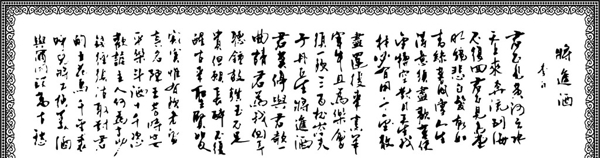 將進酒
李白
君不見黃河之水
天上來奔流到海
不復回君不見高堂
明鏡悲白髮朝如
青絲暮成雪人生
得意須盡歡莫使
金樽空對月天生我
材必有用千金散
盡還復來烹羊
宰牛且為樂會
須一飲三百杯岑夫
子丹丘生將進酒
君莫停與君歌一
曲請君為我側耳
聽鐘鼓饌玉不足
貴但願長醉不復
醒古來聖賢皆
寂寞惟有飲者留
其名陳王昔時宴
平樂斗酒十千恣
歡謔主人何為言少
錢徑須沽取對君
酌五花馬千金裘
呼兒將出換美酒
與爾同銷萬古愁